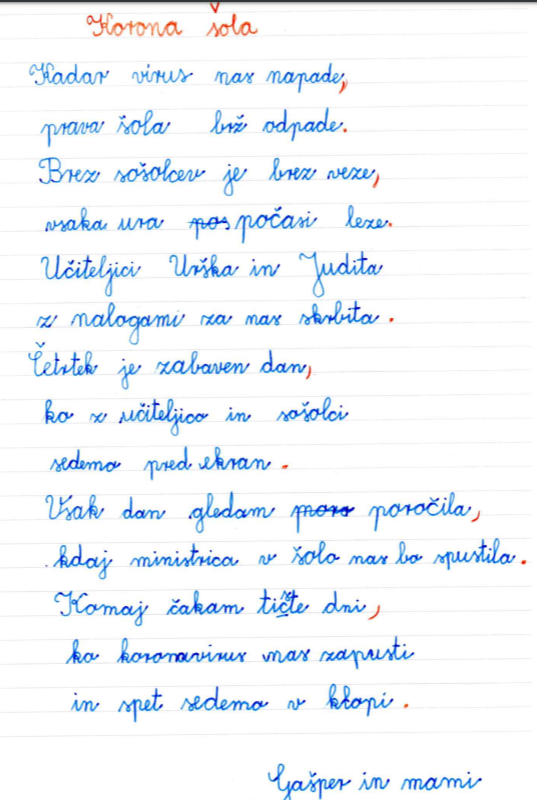 Korona šola
Kadar virus nas napade,
prava šola brž odpade.
Brez sošolcev je brez veze,
vsaka ura pos počasi leze.
Učiteljici Urška in Judita
z nalogami za nas skrbita.
Četrtek je zabaven dan,
ko z učiteljico in sošolci
sedemo pred ekran.
Vsak dan gledam poro poročila,
kdaj ministrica v šolo nas bo spustila.
Komaj čakam tičte dni,
ko koronavirus nas zapusti
in spet sedemo v klopi.
Gašper in mami